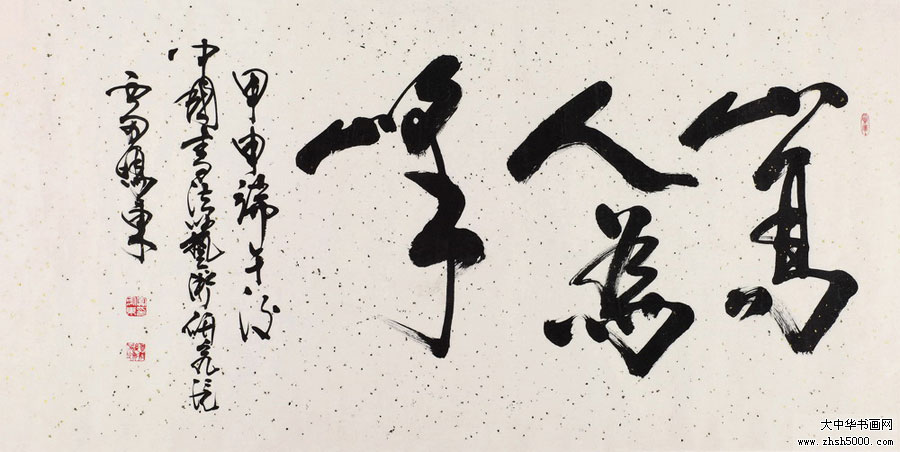 山高
人為
峰
甲申端午後
中國書法藝術研究院
大中华书画网
www.zhsh5000.com